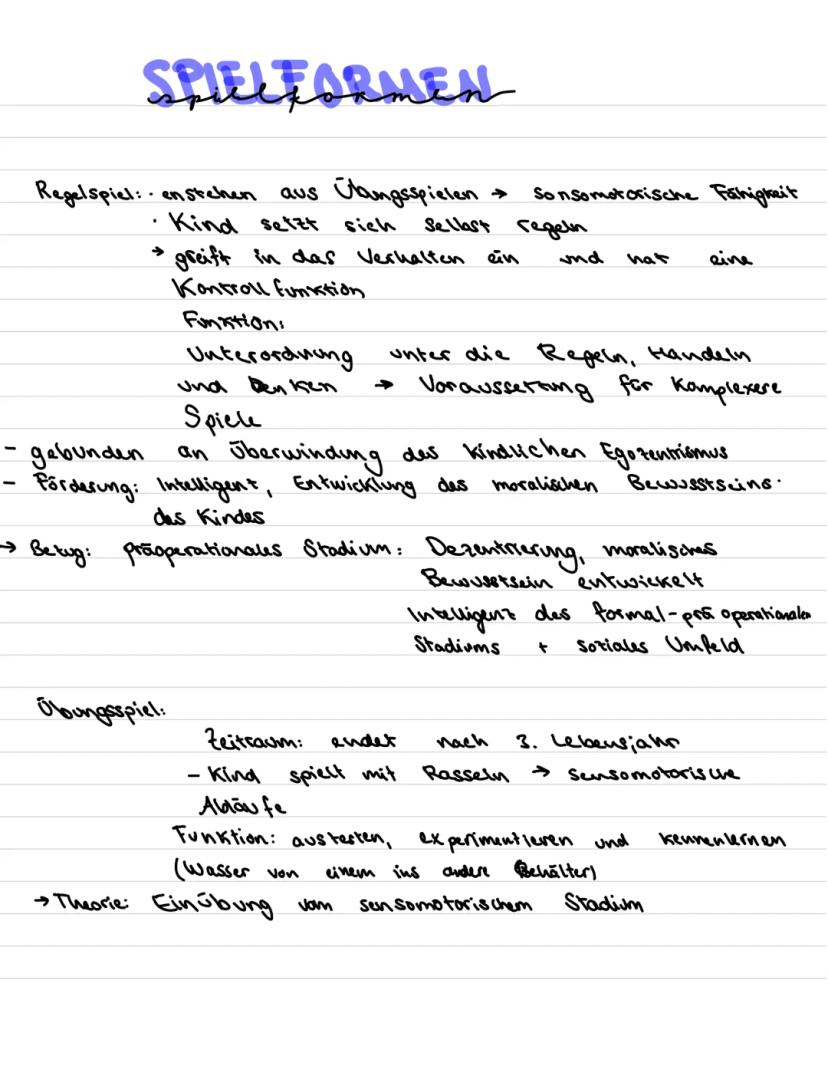 SPIELFORMEN
spielformen
Regelspiel: · enstehen aus Übungsspielen → sonsomotorische Fähigkeit
· Kind setzt sich sellbst regeln
→ greift in das Verhalten ein und hat eine
Kontrollfunktion
Funktion:
Unterordnung unter die Regeln, Handeln
und Denken → Voraussetzung für Komplexere
Spiele
- gebunden an Überwindung des kindlichen Egozentrismus
- Förderung: Intelligenz, Entwicklung des moralischen Bewusstseins
des Kindes
→ Bezug: präoperationales Stadium: Dezentrierung, moralisches
Bewusstsein entwickelt
Intelligenz des formal-präoperationalen
Stadiums + soziales Umfeld
Übungsspiel:
Zeitraum: endet nach 3. Lebensjahr
- Kind spielt mit Rasseln → sensomotorische
Abläufe
Funktion: austesten, experimentieren und kennenlernen
(Wasser von einem ins andere Behälter)
→ Theorie: Einübung vom sensomotorischem Stadium